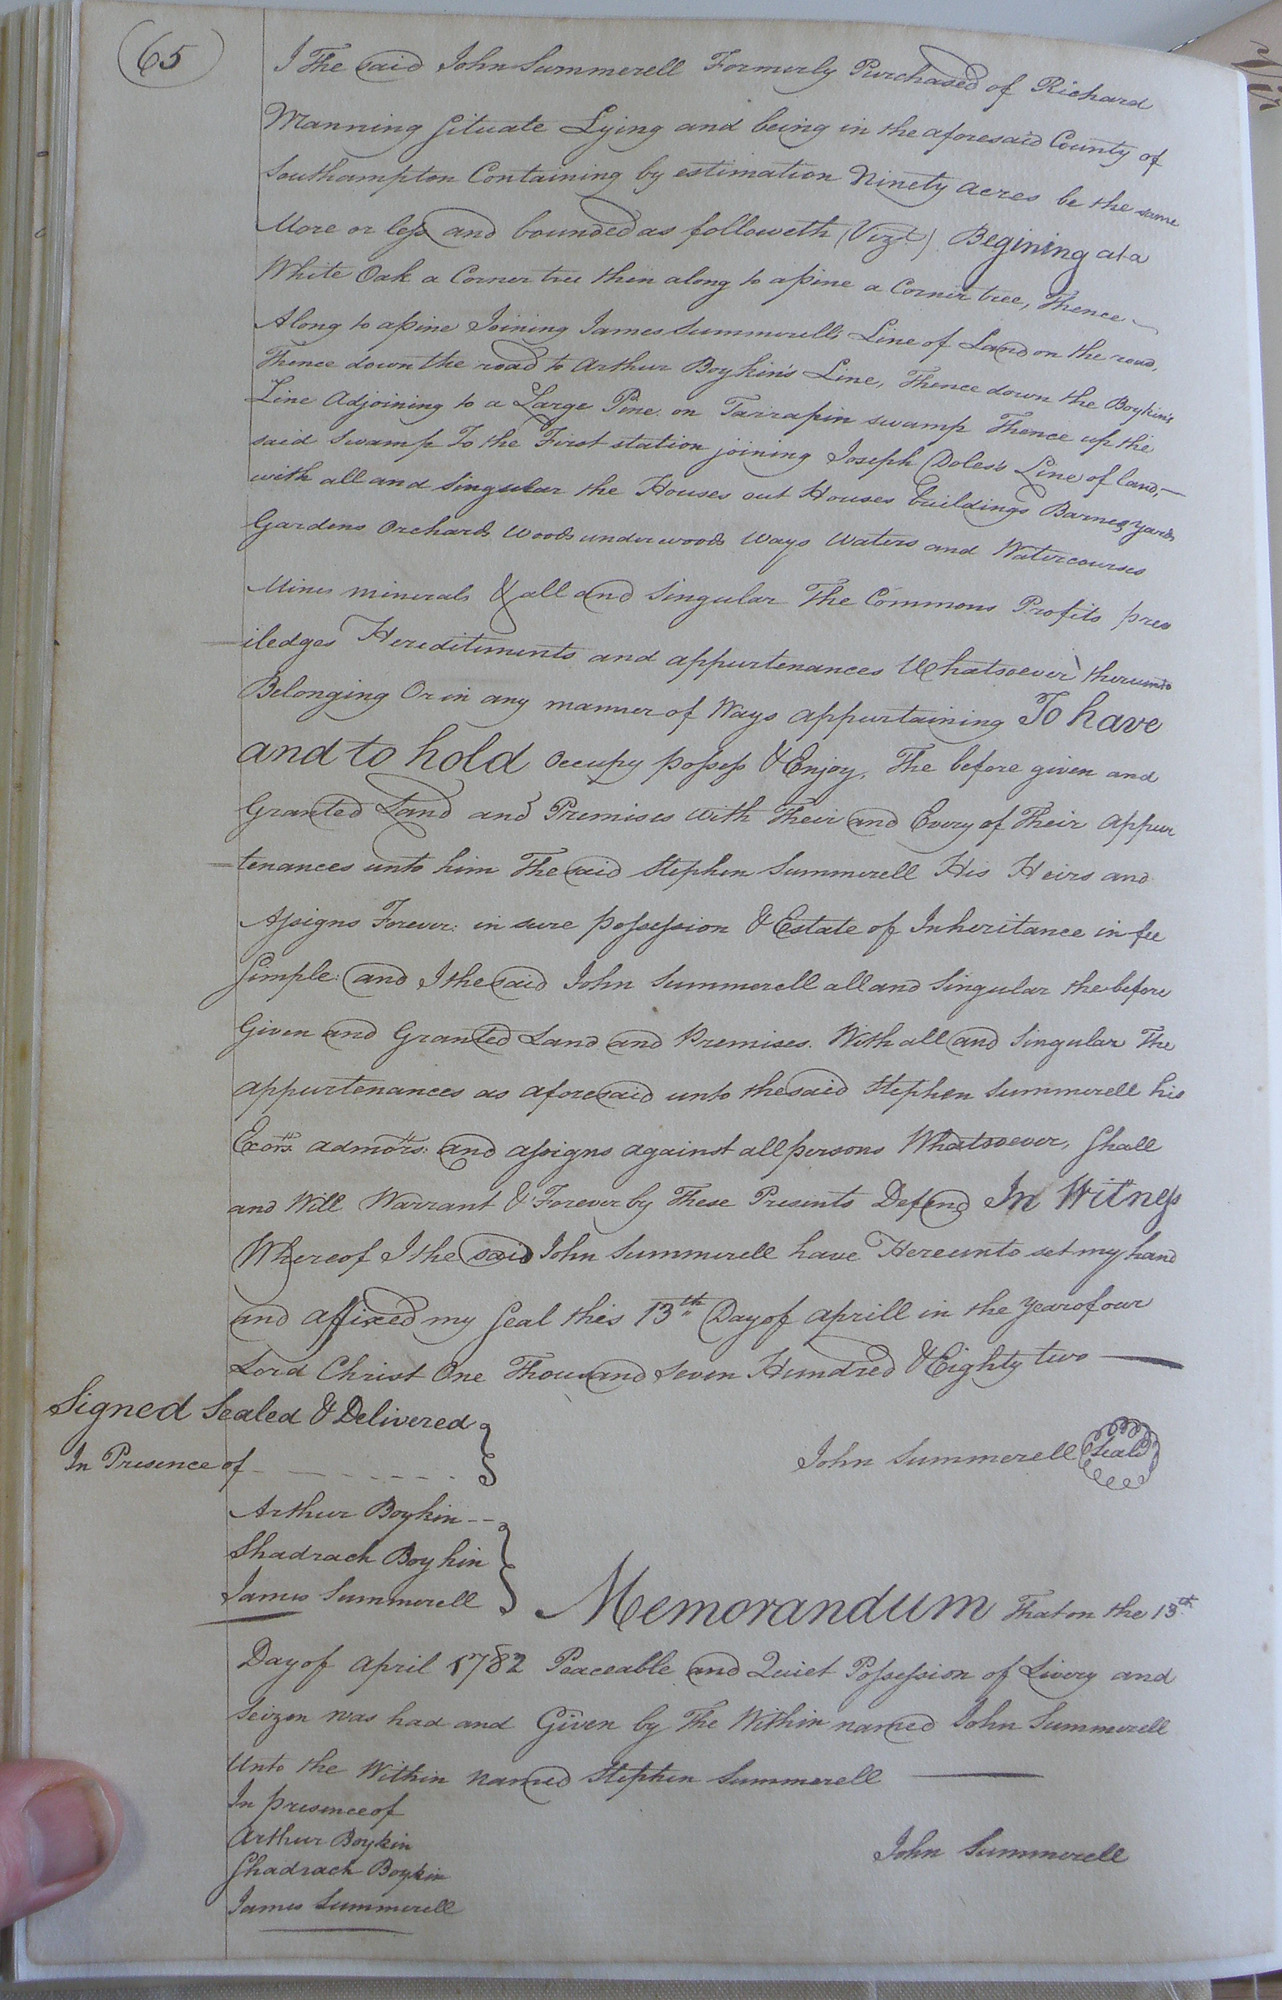 65
I The said John Summerell Formerly Purchased of Richard
Manning Situate Lying and being in the aforesaid County of
Southampton Containing by estimation Ninety acres be the same
More or less and bounded as followeth (Vizt) Begining at a
White Oak a Corner tree then along to a pine a Corner tree, Thence
Along to a pine Joining James Summerell's Line of Land on the road,
Thence down the road to Arthur Boykin's Line, Thence down the Boykin's
Line Adjoining to a Large Pine on Tarrapin swamp Thence up the
said Swamp To the First station joining Joseph Doles's Line of land,
with all and Singular the Houses out Houses buildings Barnes yards
Gardens Orchards Woods under woods Ways Waters and Watercourses
Mines minerals & all and Singular The Commons Profits prev
iledges Hereditiments and appurtenances Whatsoever thereunto
Belonging Or in any manner of Ways appurtaining To have
and to hold occupy possess & Enjoy, The before given and
Granted Land and Premises With Their and Every of Their appur
tenances unto him The said Stephen Summerell His Heirs and
Assigns Forever: in sure possession & Estate of Inheritance in fee
Simple: and I the said John Summerell all and Singular the before
Given and Granted Land and Premises. With all and Singular The
appurtenances as aforesaid unto the said Stephen Summerell his
Exors. admors. and assigns against all persons Whatsoever, Shall
and Will Warrant & Forever by These Presents Defend In Witness
Whereof I the said John Summerell have Hereunto set my hand
and affixed my Seal this 13th Day of aprill in the Year of our
Lord Christ One Thousand Seven Hundred & Eighty two
Signed Sealed & Delivered
In Presence of
John Summerell Seald
Arthur Boykin
Shadrach Boykin
James Summerell
Memorandum That on the 13th
Day of april 1782 Peaceable and Quiet Possession of Livery and
Seizen was had and Given by The Within named John Summerell
Unto the Within named Stephen Summerell
In presence of
Arthur Boykin
Shadrach Boykin
James Summerell
John Summerell